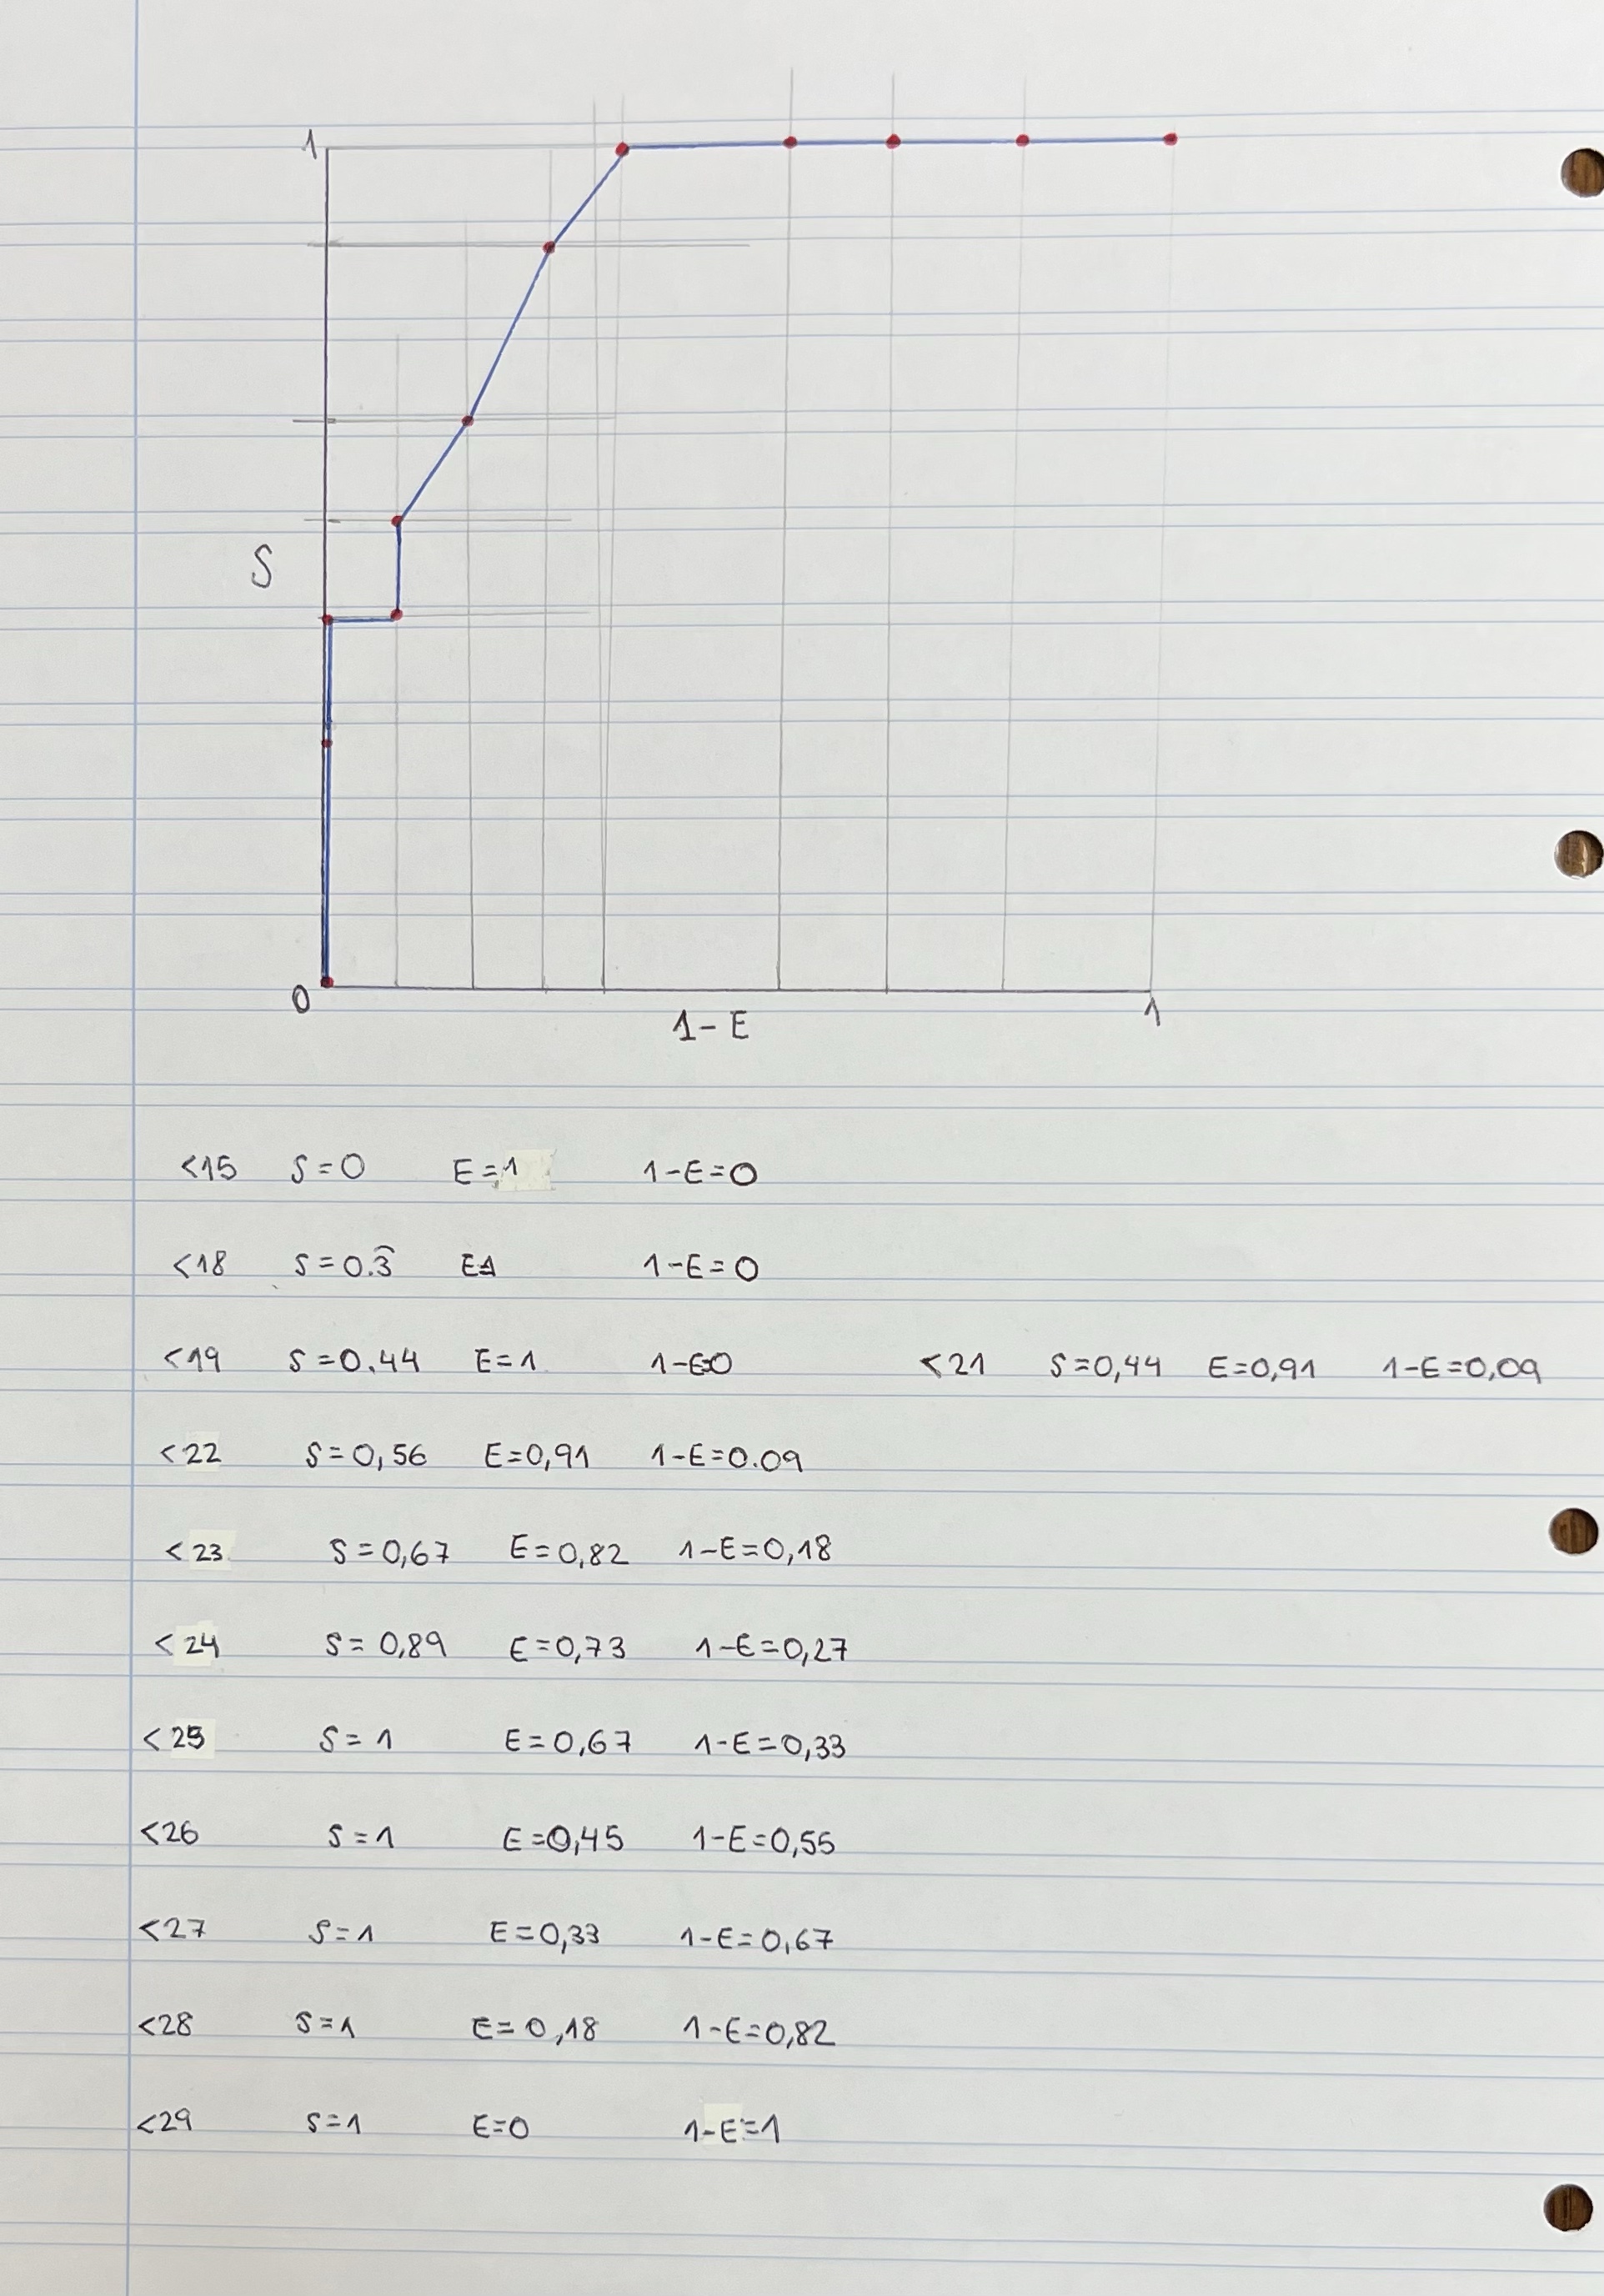 1
S
0
1
1-E
<15 S=0 E=1 1-E=0
<18 S=0.3̅ E1 1-E=0
<19 S=0.44 E=1 1-E=0 <21 S=0,44 E=0,91 1-E=0,09
<22 S=0,56 E=0,91 1-E=0.09
<23 S=0,67 E=0,82 1-E=0,18
<24 S=0,89 E=0,73 1-E=0,27
<25 S=1 E=0,67 1-E=0,33
<26 S=1 E=0,45 1-E=0,55
<27 S=1 E=0,33 1-E=0,67
<28 S=1 E=0,18 1-E=0,82
<29 S=1 E=0 1-E=1